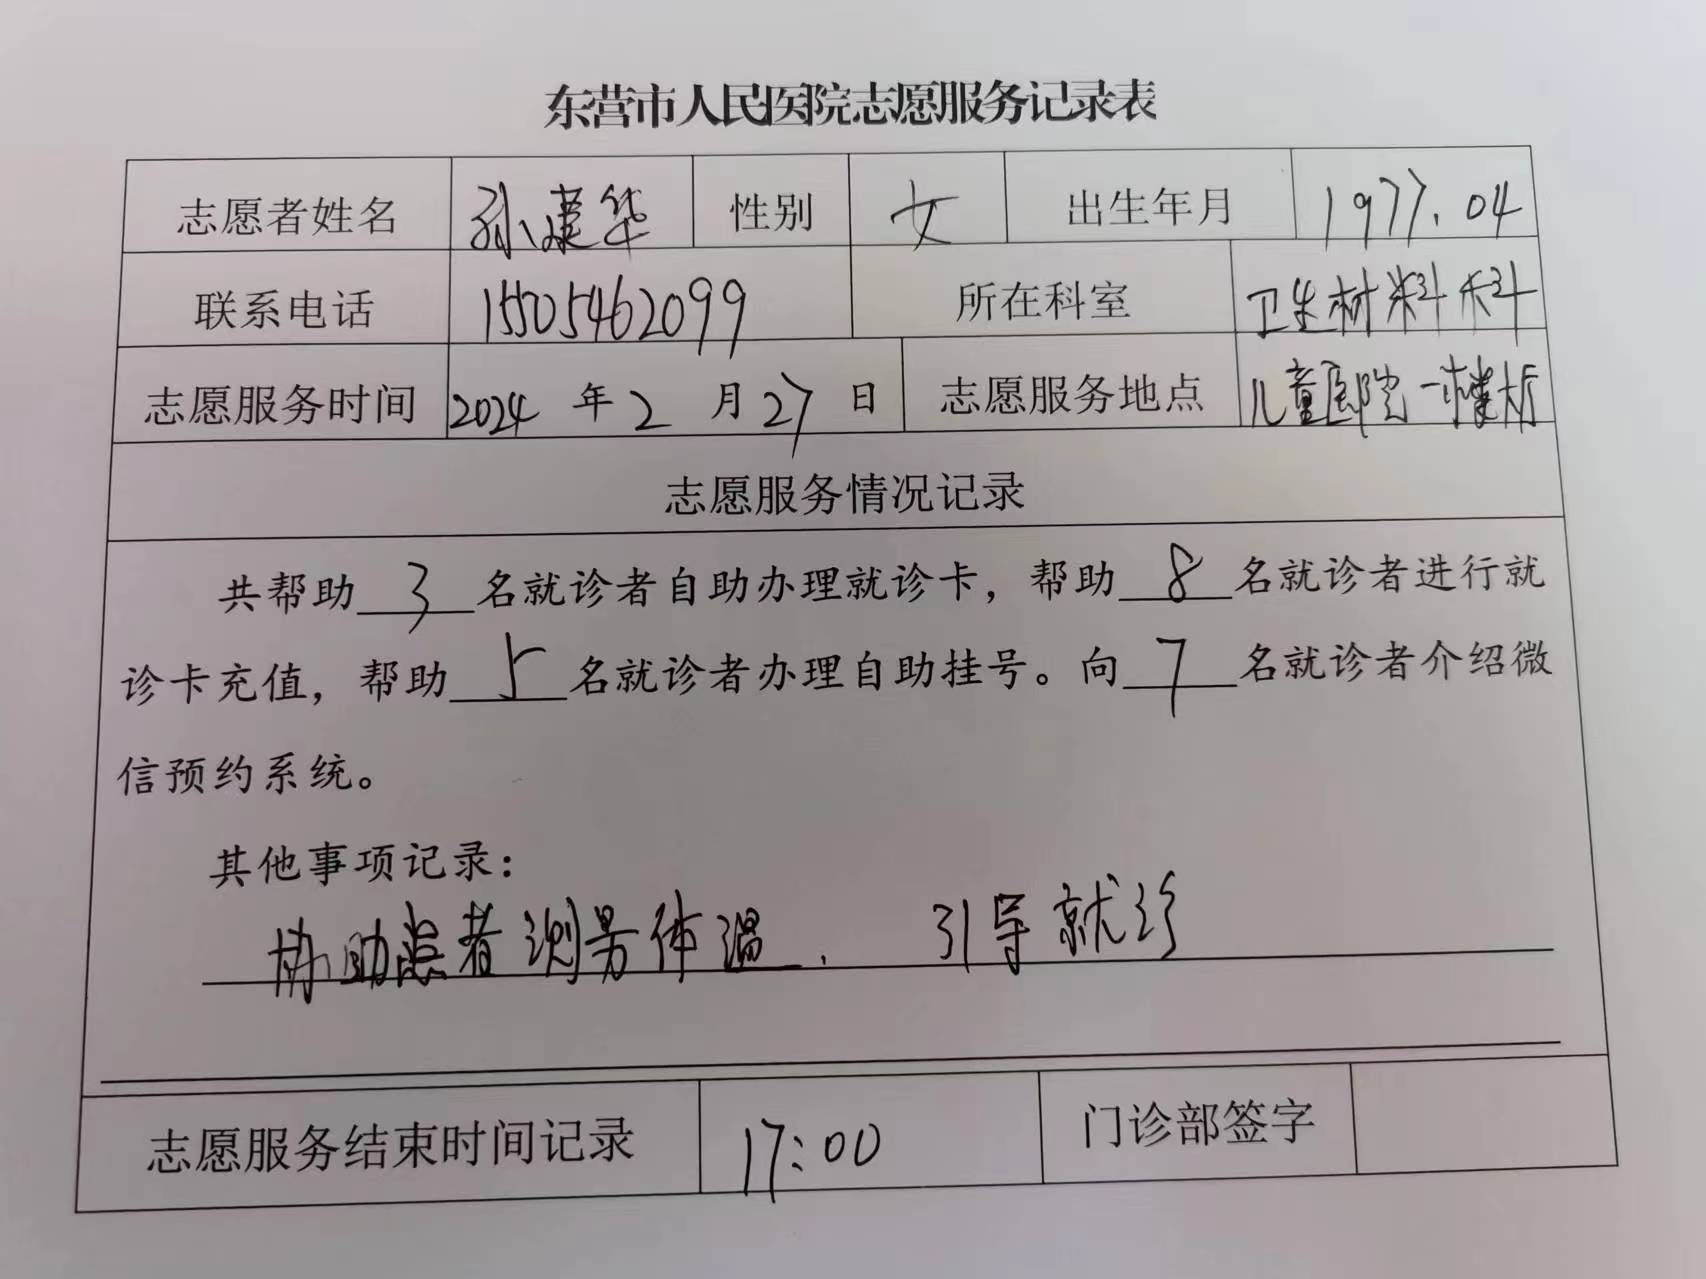 东营市人民医院志愿服务记录表
志愿者姓名 孙建华 性别 女 出生年月 1977.04
联系电话 15505462099 所在科室 卫生材料科
志愿服务时间 2024 年 2 月 27 日 志愿服务地点 儿童医院一楼
志愿服务情况记录
共帮助 3 名就诊者自助办理就诊卡，帮助 8 名就诊者进行就
诊卡充值，帮助 5 名就诊者办理自助挂号。向 7 名就诊者介绍微
信预约系统。
其他事项记录：
协助患者测量体温、引导就诊
志愿服务结束时间记录 17:00 门诊部签字